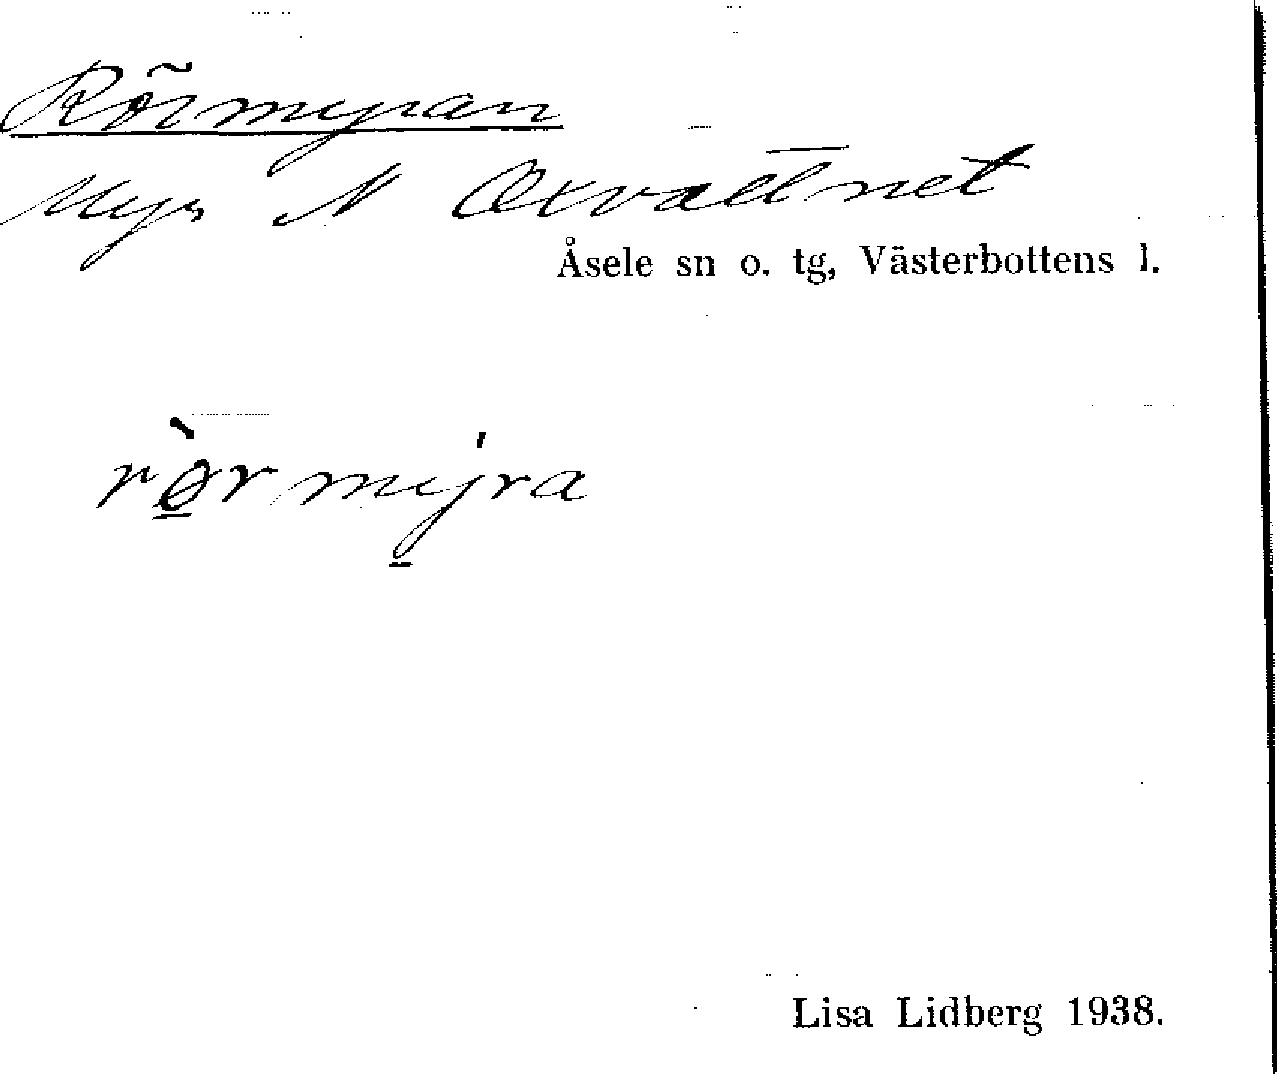 Rörmyran
Myr N Oxvattnet
Åsele sn o. tg, Västerbottens l.
rø̀rmýra
Lisa Lidberg 1938.